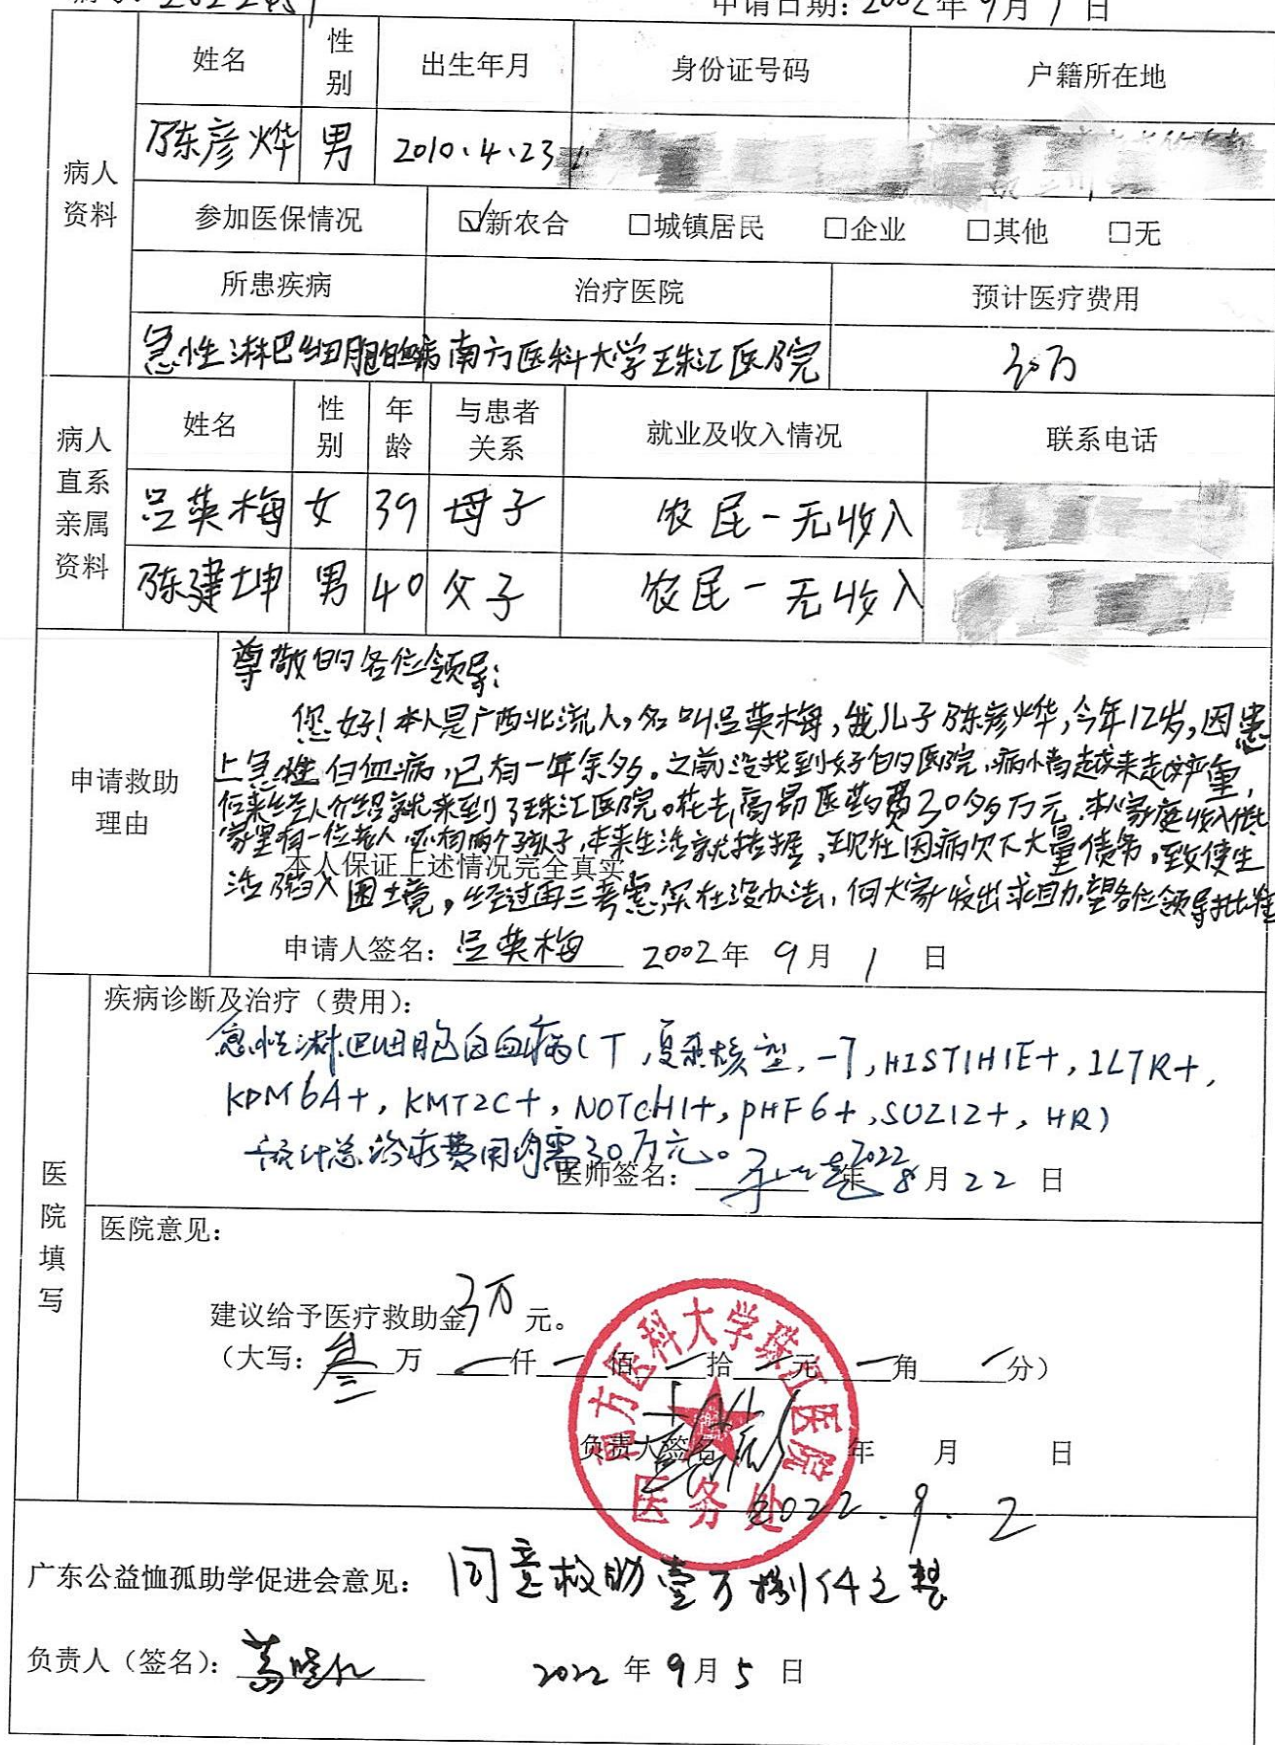 申请日期：2002年9月1日
姓名 性别 出生年月 身份证号码 户籍所在地
病人资料
陈彦烨 男 2010.4.23
参加医保情况 ☑新农合 □城镇居民 □企业 □其他 □无
所患疾病 治疗医院 预计医疗费用
急性淋巴细胞白血病 南方医科大学珠江医院 30万
病人直系亲属资料
姓名 性别 年龄 与患者关系 就业及收入情况 联系电话
吕英梅 女 39 母子 农民一无收入
陈建坤 男 40 父子 农民一无收入
申请救助理由
尊敬的各位领导：
您好！本人是广西北流人，名叫吕英梅，我儿子陈彦烨，今年12岁，因患
上急性白血病，已有一年余多。之前没找到好的医院，病情越来越严重，
后来经人介绍就来到了珠江医院。花去高昂医药费30多万元，本人家庭收入低，
家里有一位老人，还有两个孩子，本来生活就拮据，现在因病欠下大量债务，致使生
本人保证上述情况完全真实。
活陷入困境，经过再三考虑实在没办法，向大家发出求助，望各位领导批准
申请人签名：吕英梅 2002年9月1日
医院填写
疾病诊断及治疗（费用）：
急性淋巴细胞白血病（T，复杂核型，-7，HIST1H1E+，IL7R+，
KDM6A+，KMT2C+，NOTCH1+，PHF6+，SUZ12+，HR）
预计总治疗费用约需30万元。
医师签名： 2022年8月22日
医院意见：
建议给予医疗救助金3万元。
（大写：叁万一仟一佰一拾一元一角一分）
南方医科大学珠江医院
医务处
负责人签名 年 月 日
2022.9.2
广东公益恤孤助学促进会意见：同意救助壹万捌仟元整
负责人（签名）： 2022年9月5日